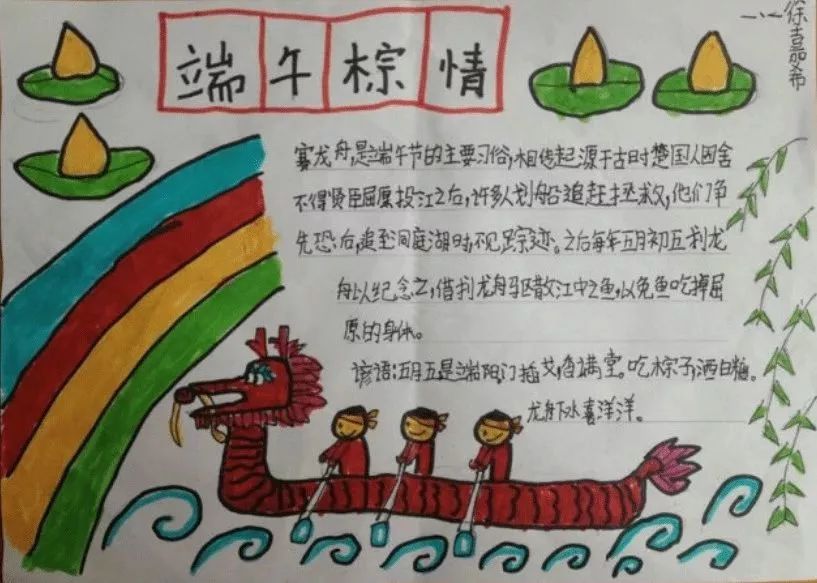 端午棕情
一·八
徐嘉希
赛龙舟,是端午节的主要习俗,相传起源于古时楚国人因舍
不得贤臣屈原投江之后,许多人划船追赶拯救,他们争
先恐后,追至洞庭湖时不见踪迹。之后每年五月初五划龙
舟以纪念之,借划龙舟驱散江中之鱼,以免鱼吃掉屈
原的身体。
谚语:五月五是端阳,门插艾,香满堂。吃棕子,洒白糖。
龙舟下水喜洋洋。